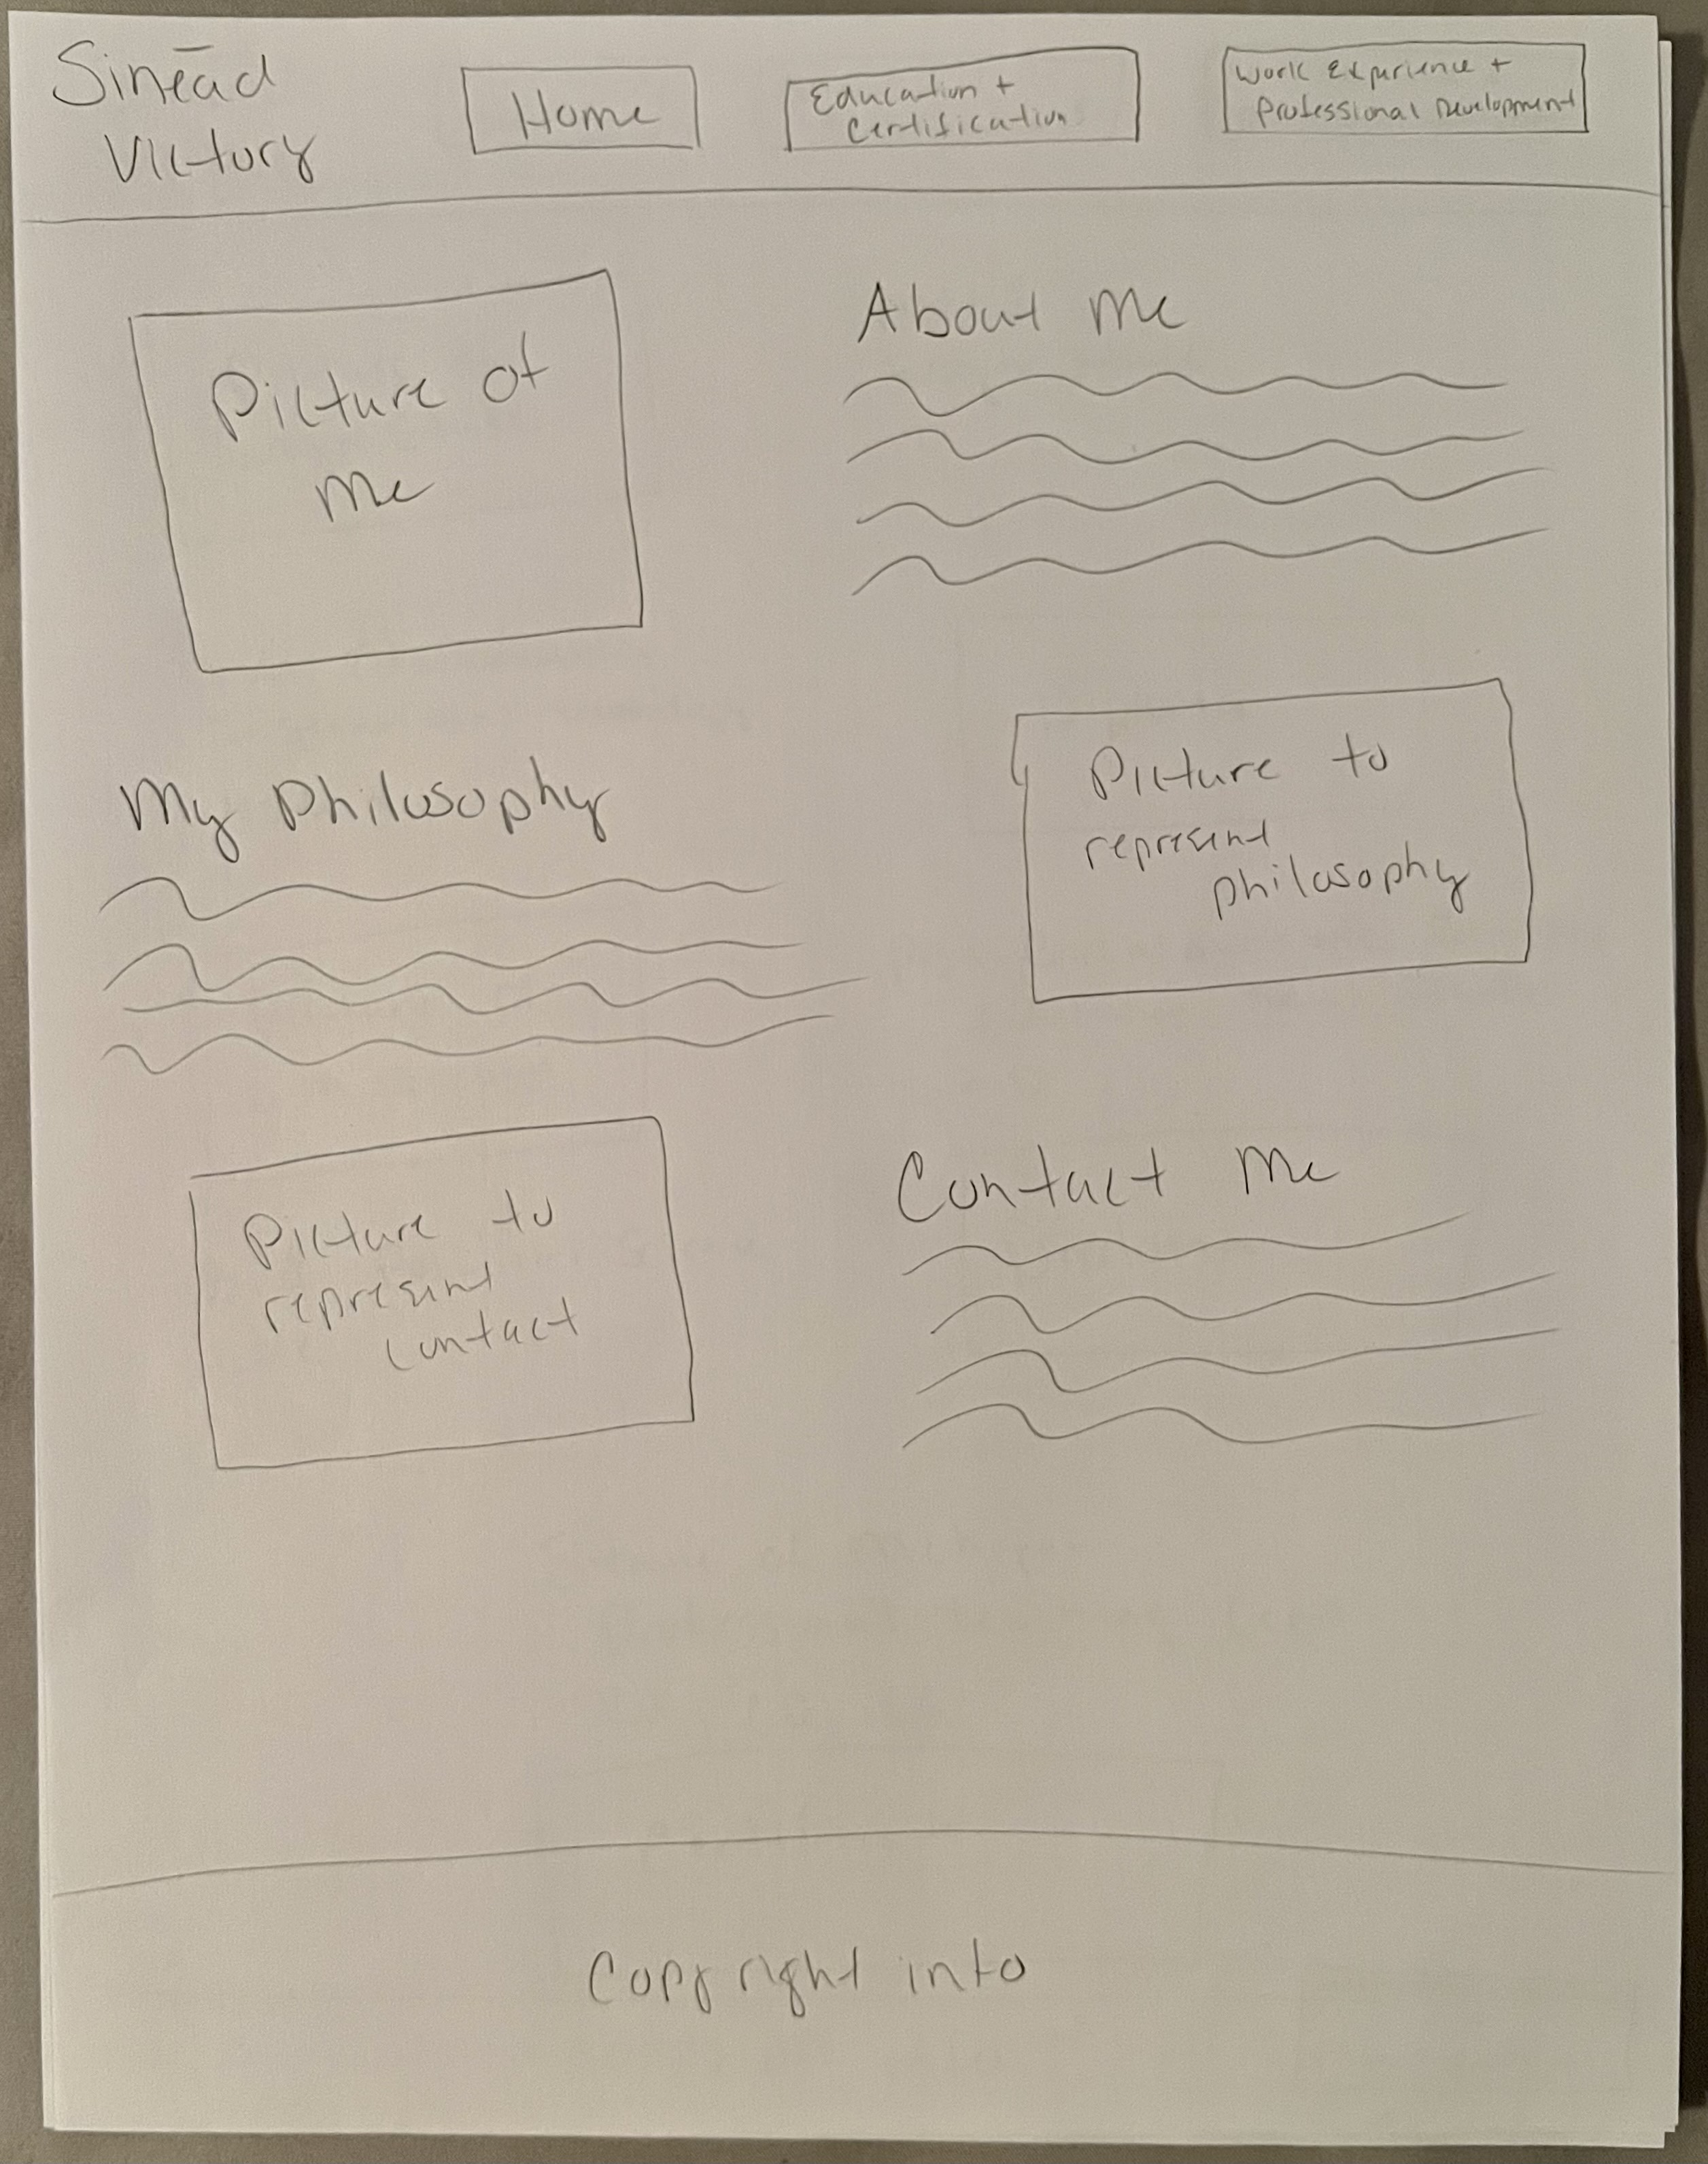 Sinēad
Victory
Home
Education +
Certification
Work Experience +
Professional Development
Picture of
me
About Me
My Philosophy
Picture to
represent
philosophy
Picture to
represent
contact
Contact Me
Copyright info